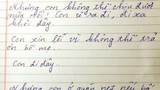 Nhưng con không thể chịu được
nữa rồi. Con sẽ ra đi, đi xa
khỏi đây.
Con xin lỗi vì không thể trả
ơn bố mẹ.
Con đi đây...
Nhưng con
nếu bố